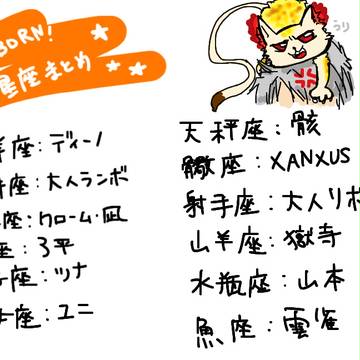 BORN!
星座まとめ
うり
羊座:ディーノ
座:大人ランボ
座:クローム・凪
座:3平
座:ツナ
座:ユニ
天秤座:骸
座:XANXUS
射手座:大人リボ
山羊座:獄寺
水瓶座:山本
魚座:雲雀